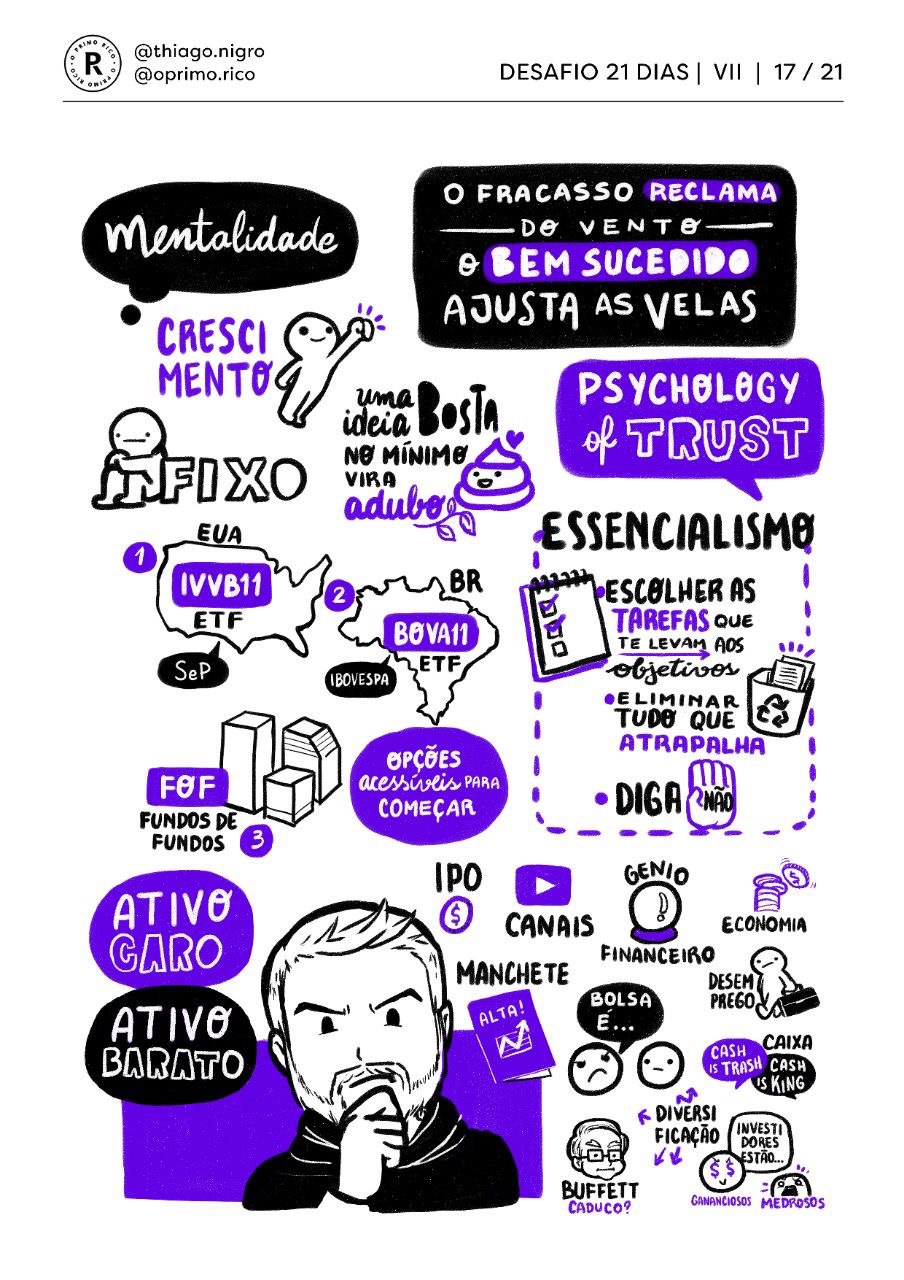 @thiago.nigro
@oprimo.rico
R
O PRIMO RICO · O PRIMO RICO
DESAFIO 21 DIAS | VII | 17 / 21
Mentalidade
CRESCI
MENTO
FIXO
O FRACASSO RECLAMA
DO VENTO
O BEM SUCEDIDO
AJUSTA AS VELAS
uma
ideia BOSTA
NO MÍNIMO
VIRA
adubo
PSYCHOLOGY
of TRUST
ESSENCIALISMO
ESCOLHER AS
TAREFAS QUE
TE LEVAM AOS
objetivos
• ELIMINAR
TUDO QUE
ATRAPALHA
• DIGA NÃO
1
EUA
IVVB11
ETF
SeP
2
BR
BOVA11
ETF
IBOVESPA
FOF
FUNDOS DE
FUNDOS
3
OPÇÕES
acessíveis PARA
COMEÇAR
ATIVO
CARO
ATIVO
BARATO
IPO
$
CANAIS
GENIO
FINANCEIRO
$
ECONOMIA
MANCHETE
ALTA!
BOLSA
É...
DESEM
PREGO
CAIXA
CASH
IS TRASH
CASH
IS KING
DIVERSI
FICAÇÃO
BUFFETT
CADUCO?
INVESTI
DORES
ESTÃO...
$ $
GANANCIOSOS
MEDROSOS